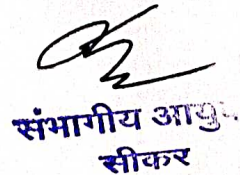 संभागीय आयु
सीकर